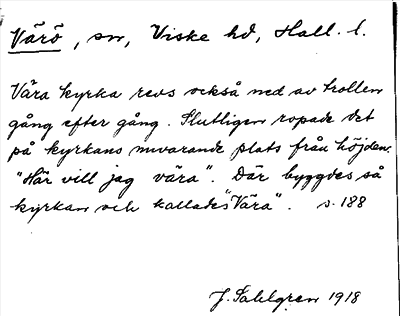 Värö, sn, Viske hd, Hall. l.
Våra kyrka revs också ned av trollen
gång efter gång. Slutligen ropade det
på kyrkans nuvarande plats från höjden:
"Här vill jag våra". Där byggdes så
kyrkan och kallades "Våra". s. 188
J. Sahlgren 1918